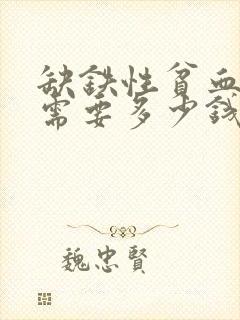 缺鉄性貧血
需要多少錢
魏忠賢